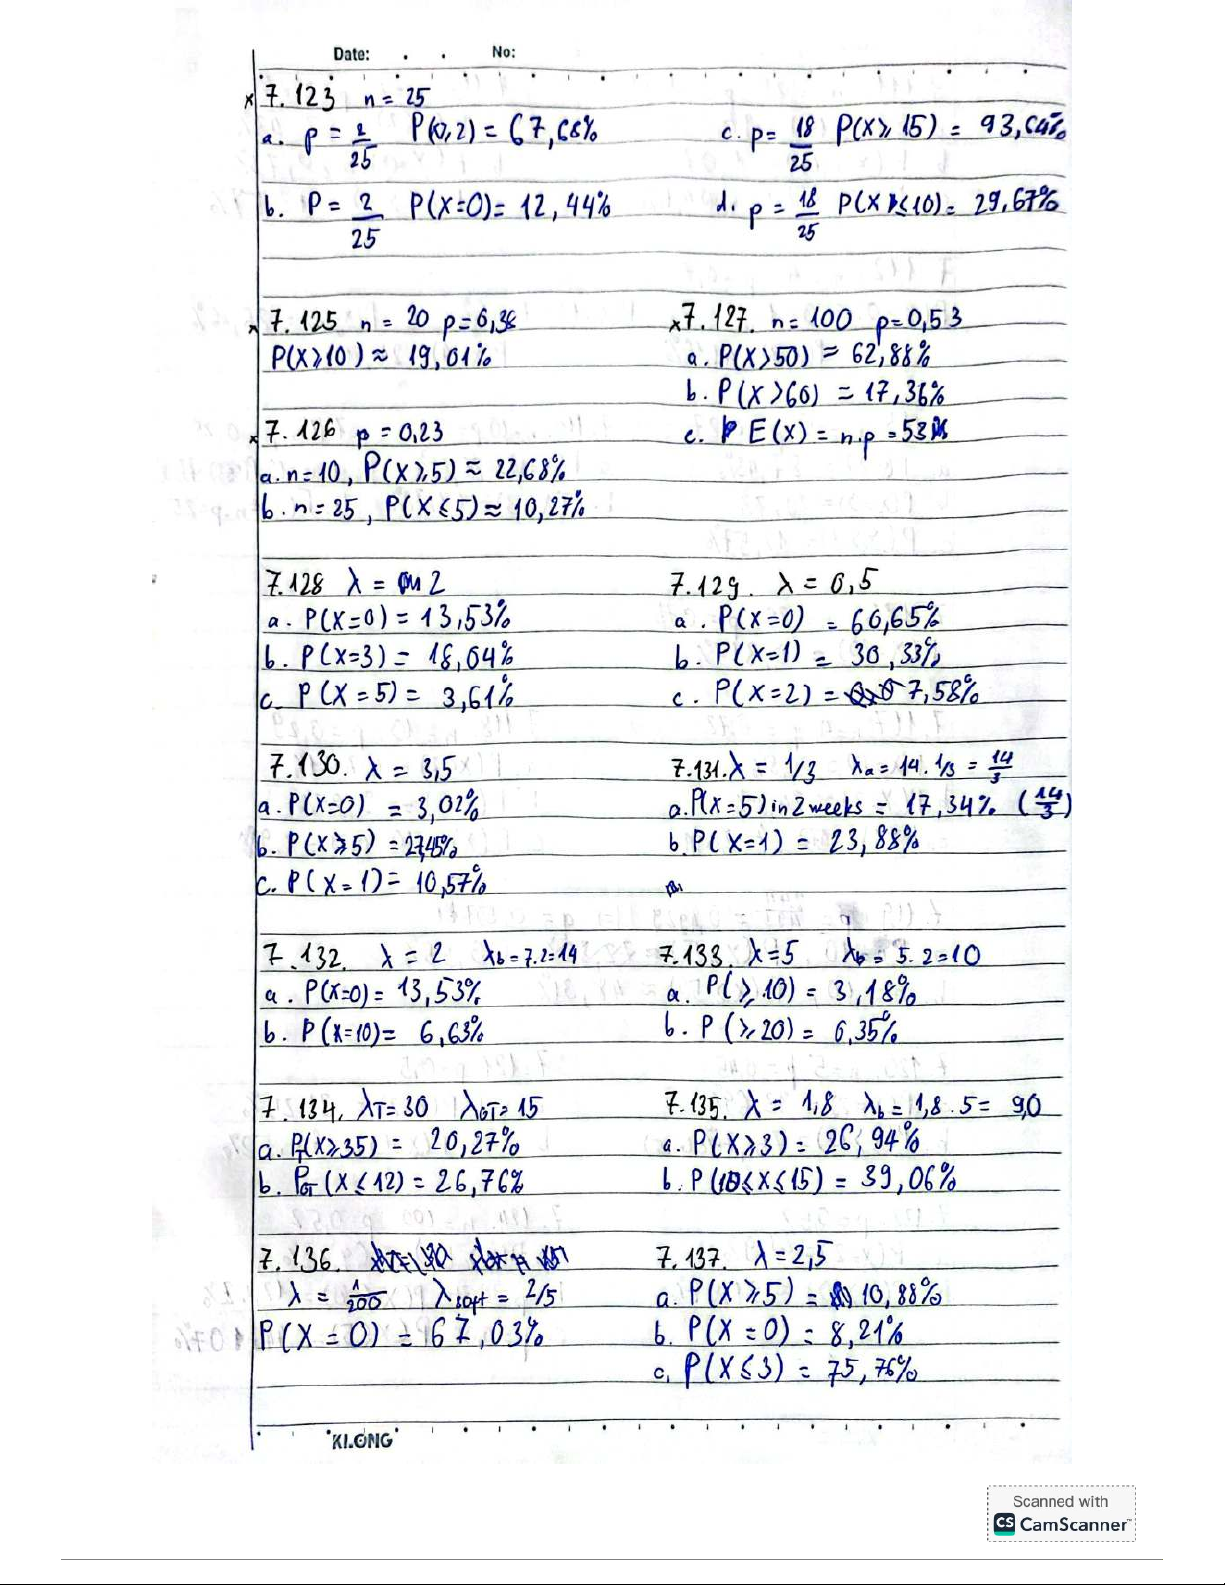 Date: . . No:
x 7.123 n = 25
a. p = 2/25 P(≥2) = 67,68%
b. P = 2/25 P(X=0) = 12,44%
c. p = 18/25 P(X≥15) = 93,64%
d. p = 18/25 P(X≤10) = 29,67%
x 7.125 n = 20 p = 0,38
P(X≥10) ≈ 19,01%
x 7.126 p = 0,23
a. n = 10, P(X≥5) ≈ 22,68%
b. n = 25, P(X≤5) ≈ 10,27%
x 7.127. n = 100 p = 0,53
a. P(X>50) = 62,88%
b. P(X>60) = 17,36%
c. E(X) = n.p = 53
7.128 λ = 2
a. P(X=0) = 13,53%
b. P(X=3) = 18,04%
c. P(X=5) = 3,61%
7.129. λ = 0,5
a. P(X=0) = 60,65%
b. P(X=1) = 30,33%
c. P(X=2) = 7,58%
7.130. λ = 3,5
a. P(X=0) = 3,02%
b. P(X≥5) = 27,45%
c. P(X=1) = 10,57%
7.131. λ = 1/3 λa = 14 . 1/3 = 14/3
a. P(X=5) in 2 weeks = 17,34% (14/3)
b. P(X=1) = 23,88%
7.132. λ = 2 λb = 7.2 = 14
a. P(X=0) = 13,53%
b. P(X=10) = 6,63%
7.133. λ = 5 λb = 5.2 = 10
a. P(≥10) = 3,18%
b. P(≥20) = 0,35%
7.134. λT = 30 λGT = 15
a. PT(X≥35) = 20,27%
b. PGT(X≤12) = 26,76%
7.135. λ = 1,8 λb = 1,8 . 5 = 9,0
a. P(X≥3) = 26,94%
b. P(10≤X≤15) = 39,06%
7.136.
λ = 1/200 λsqft = 2/5
P(X=0) = 67,03%
7.137. λ = 2,5
a. P(X≥5) = 10,88%
b. P(X=0) = 8,21%
c. P(X≤3) = 75,76%
KLONG
Scanned with
CS CamScanner